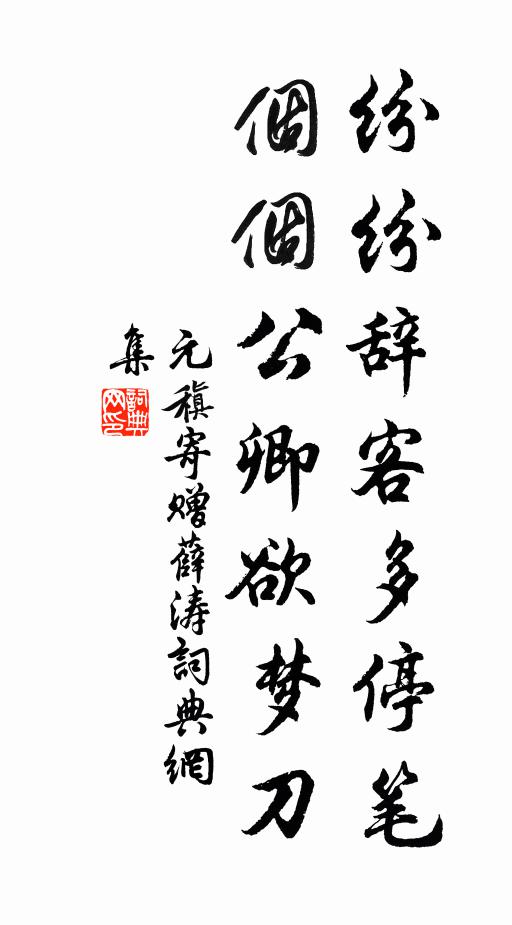 纷纷辞客多停笔
個個公卿欲梦刀
元稹寄赠薛涛詞典網
集
詞典
网印